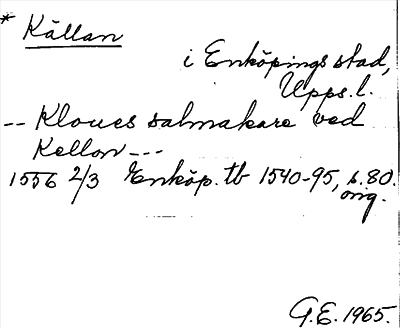 * Källan
i Enköpings stad,
Upps. l.
-- Kloues salmakare ved
Kellon ---
1556 2/3 Enköp. tb 1540-95, s. 80.
orig.
G.E. 1965.